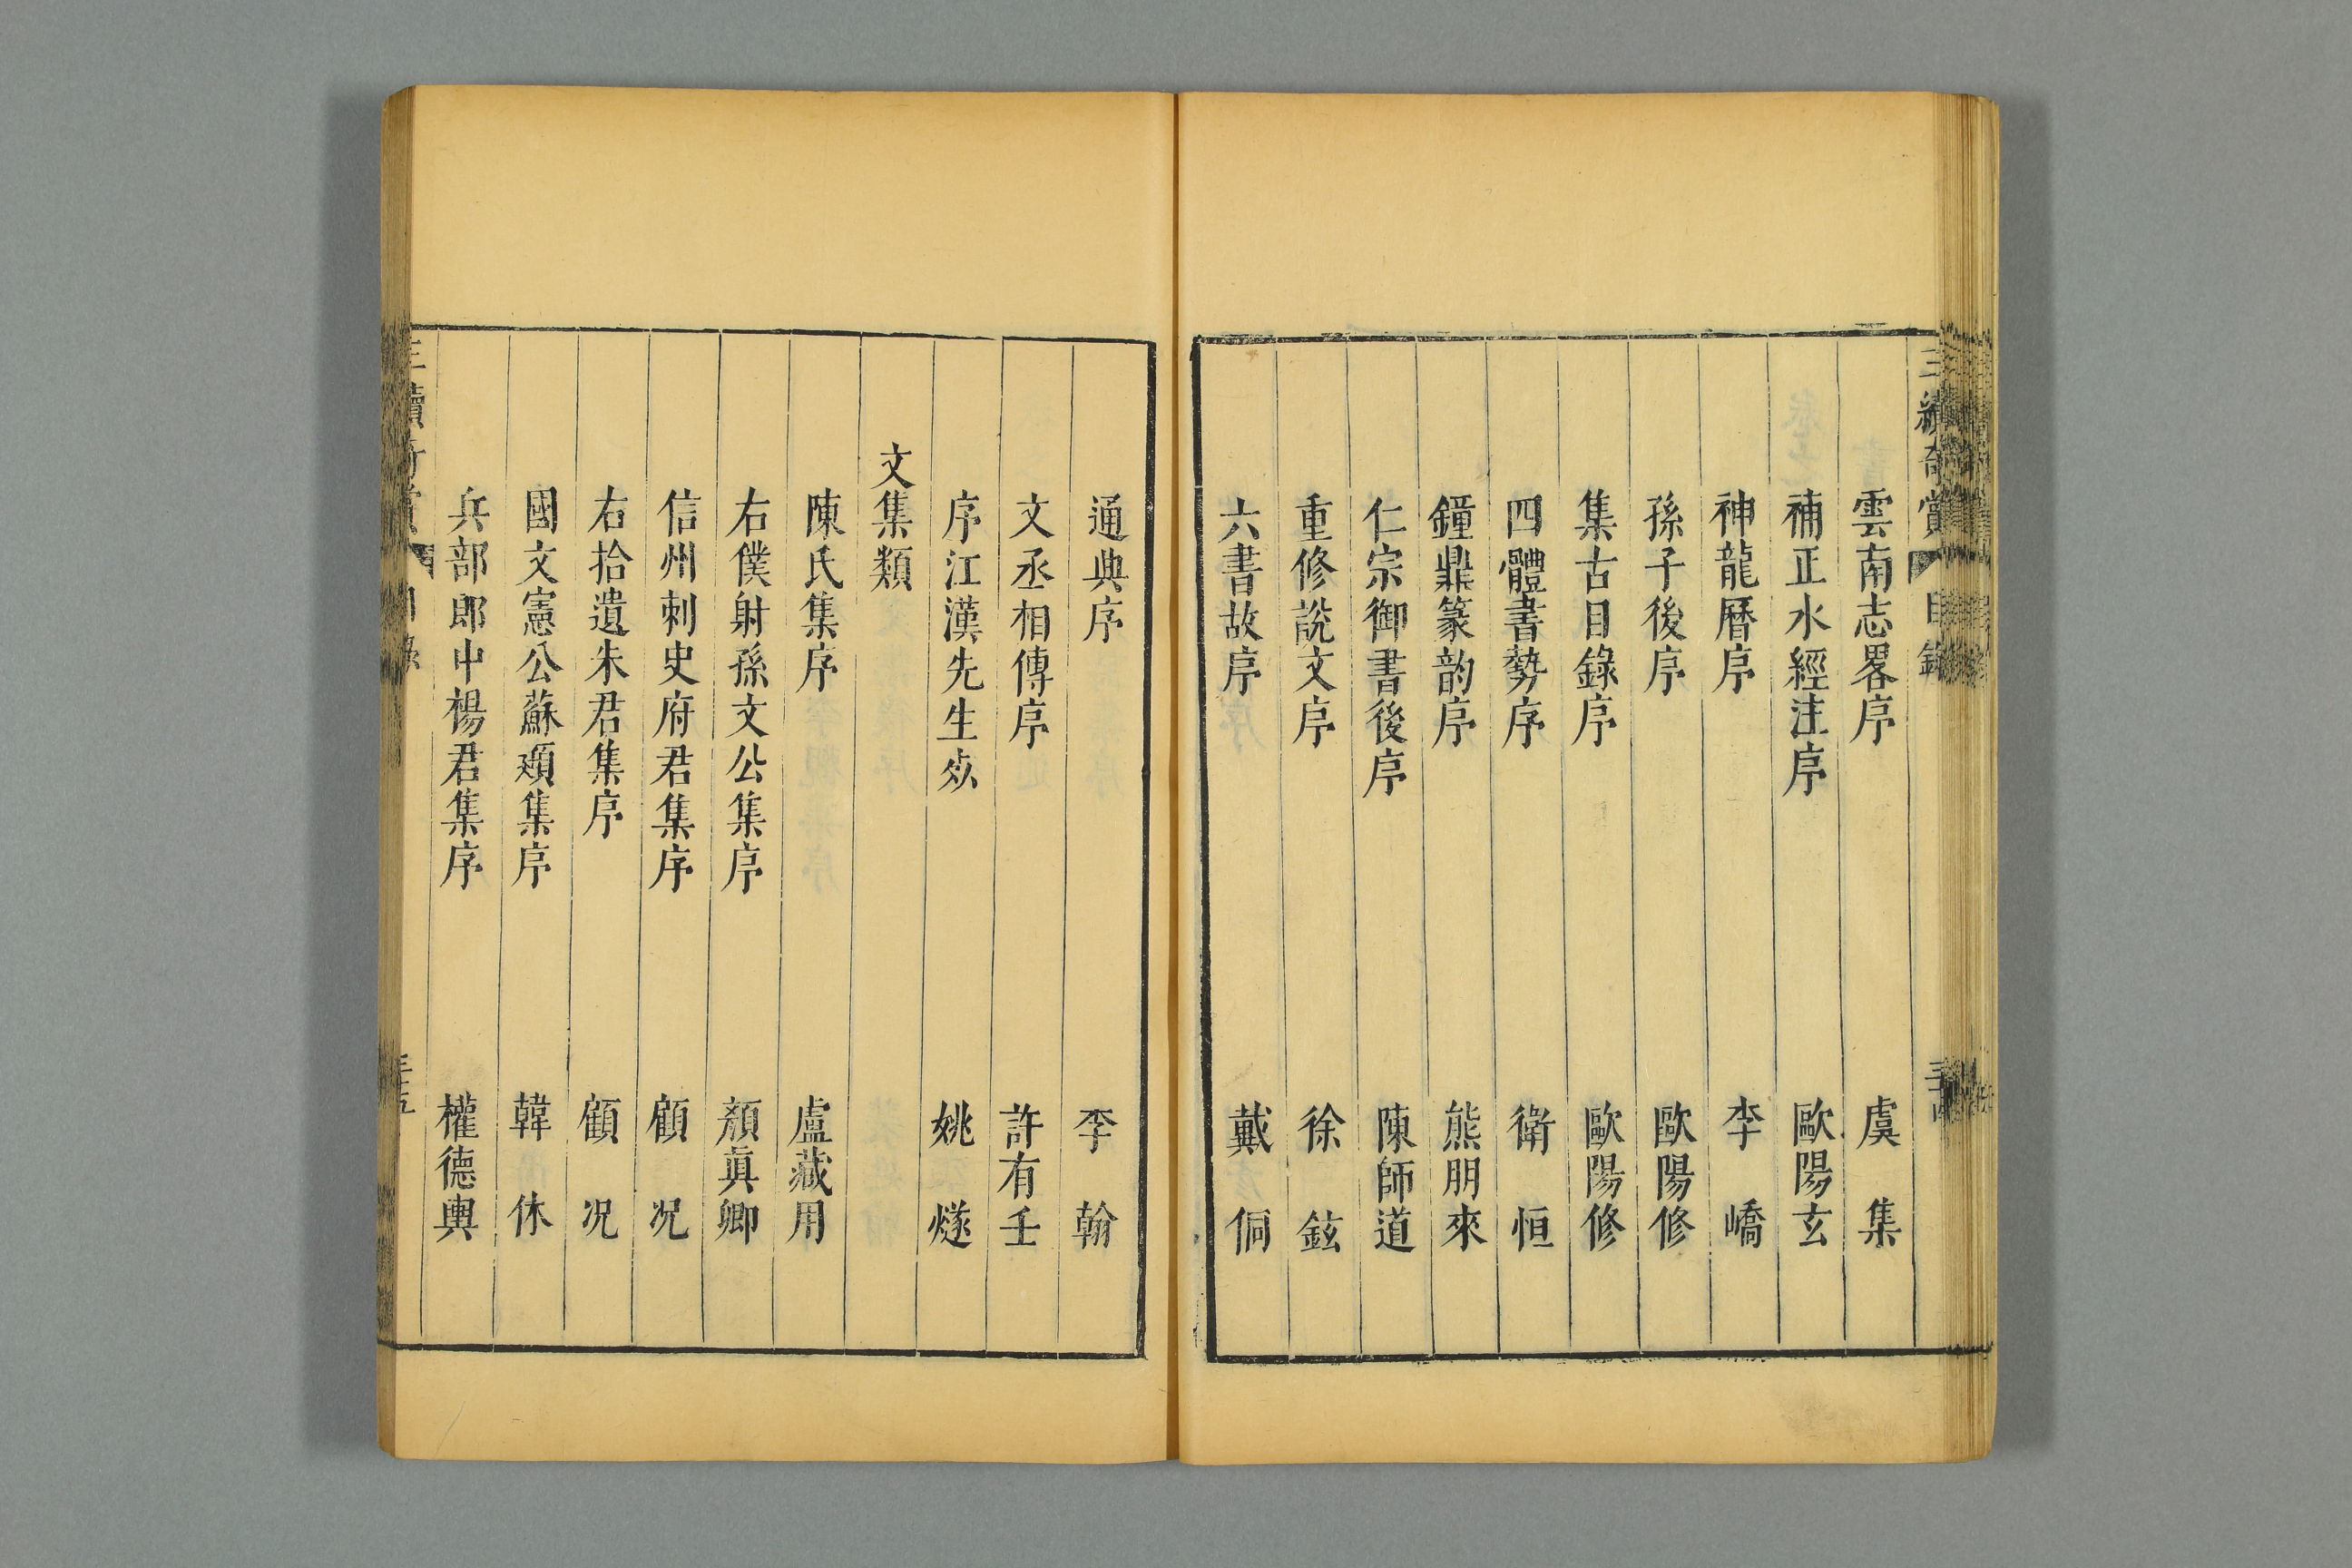 三續奇賞 目錄
雲南志畧序 虞集
補正水經注序 歐陽玄
神龍曆序 李嶠
孫子後序 歐陽修
集古目錄序 歐陽修
四體書勢序 衛恒
鐘鼎篆韵序 熊朋來
仁宗御書後序 陳師道
重修說文序 徐鉉
六書故序 戴侗
通典序 李翰
文丞相傳序 許有壬
序江漢先生 姚燧
文集類
陳氏集序 盧藏用
右僕射孫文公集序 顏眞卿
信州刺史府君集序 顧况
右拾遺朱君集序 顧况
國文憲公蘇頲集序 韓休
兵部郎中楊君集序 權德輿
三續奇賞 目錄 三五